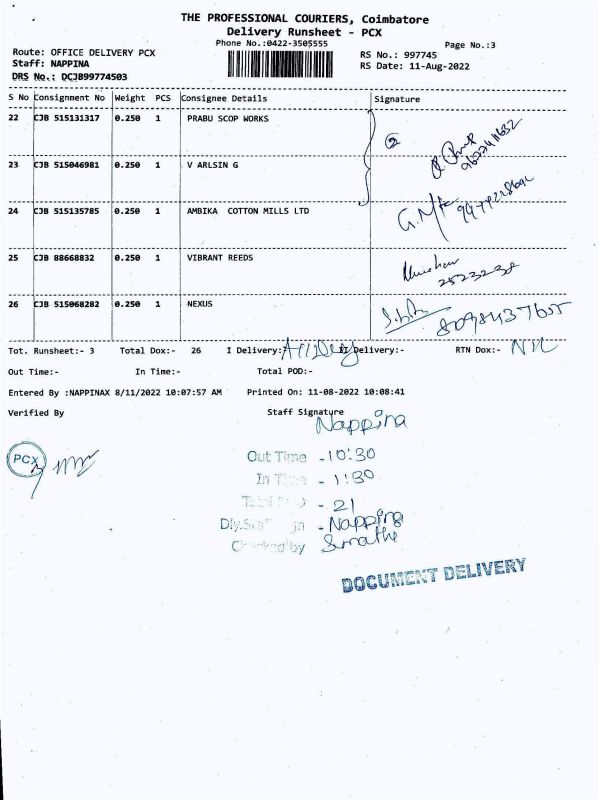 THE PROFESSIONAL COURIERS, Coimbatore
Delivery Runsheet - PCX
Phone No.:0422-3505555
Page No.:3
Route: OFFICE DELIVERY PCX
RS No.: 997745
Staff: NAPPINA
RS Date: 11-Aug-2022
DRS No.: DCJB99774503
S No Consignment No Weight PCS Consignee Details Signature
22 CJB 515131317 0.250 1 PRABU SCOP WORKS
23 CJB 515046981 0.250 1 V ARLSIN G
24 CJB 515135785 0.250 1 AMBIKA COTTON MILLS LTD
25 CJB 88668832 0.250 1 VIBRANT REEDS
26 CJB 515068282 0.250 1 NEXUS
Tot. Runsheet:- 3 Total Dox:- 26 I Delivery: All Dey II Delivery:- RTN Dox:- NIL
Out Time:- In Time:- Total POD:-
Entered By :NAPPINAX 8/11/2022 10:07:57 AM Printed On: 11-08-2022 10:08:41
Verified By Staff Signature
Nappina
PCX
Out Time - 10:30
In Time - 1:30
- 21
- Nappina
Checked by
DOCUMENT DELIVERY